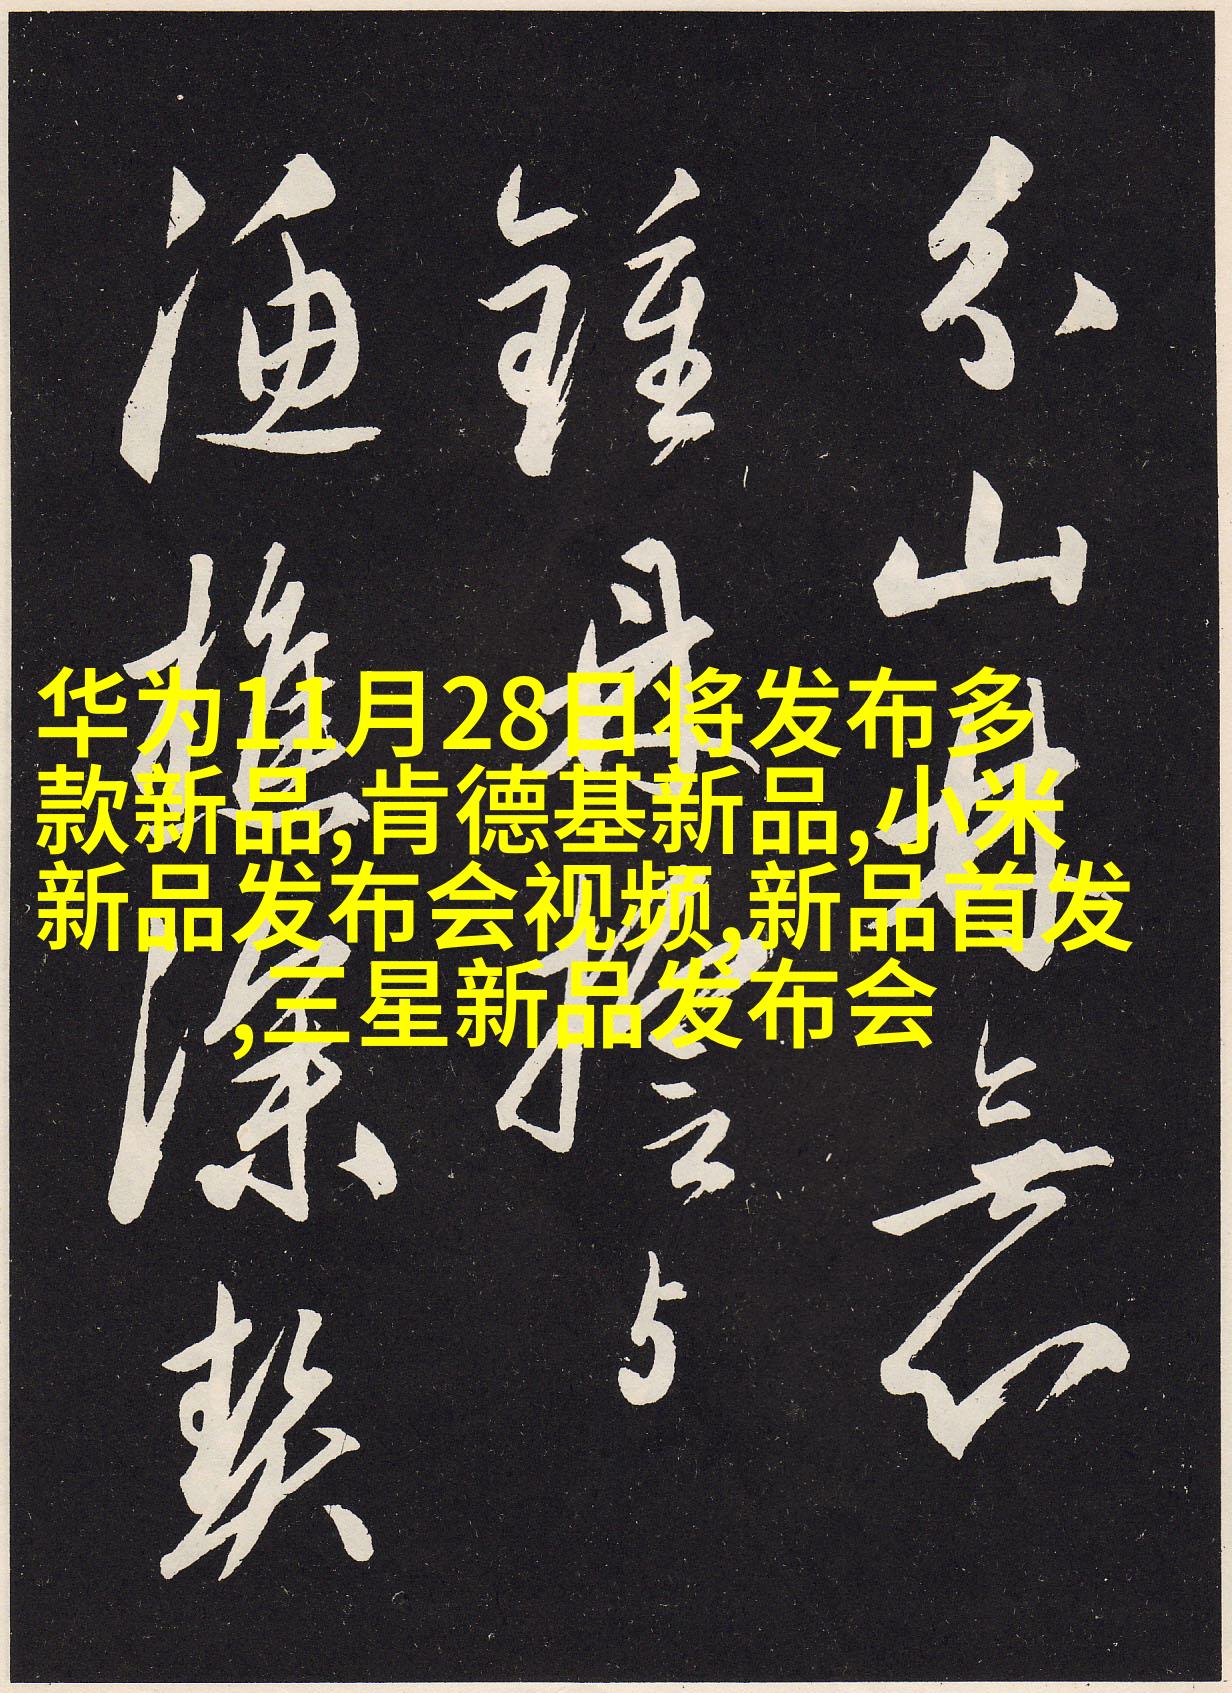 华为11月28日将发布多
款新品,肯德基新品,小米
新品发布会视频,新品首发
,三星新品发布会
山
与
漁樵深契